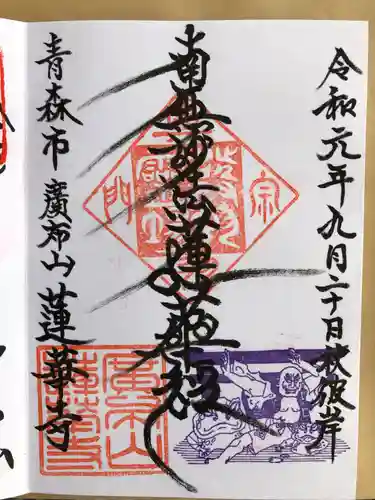 令和元年九月二十日秋彼岸
南無妙法蓮華経
青森市廣布山蓮華寺
廣布山
蓮華寺